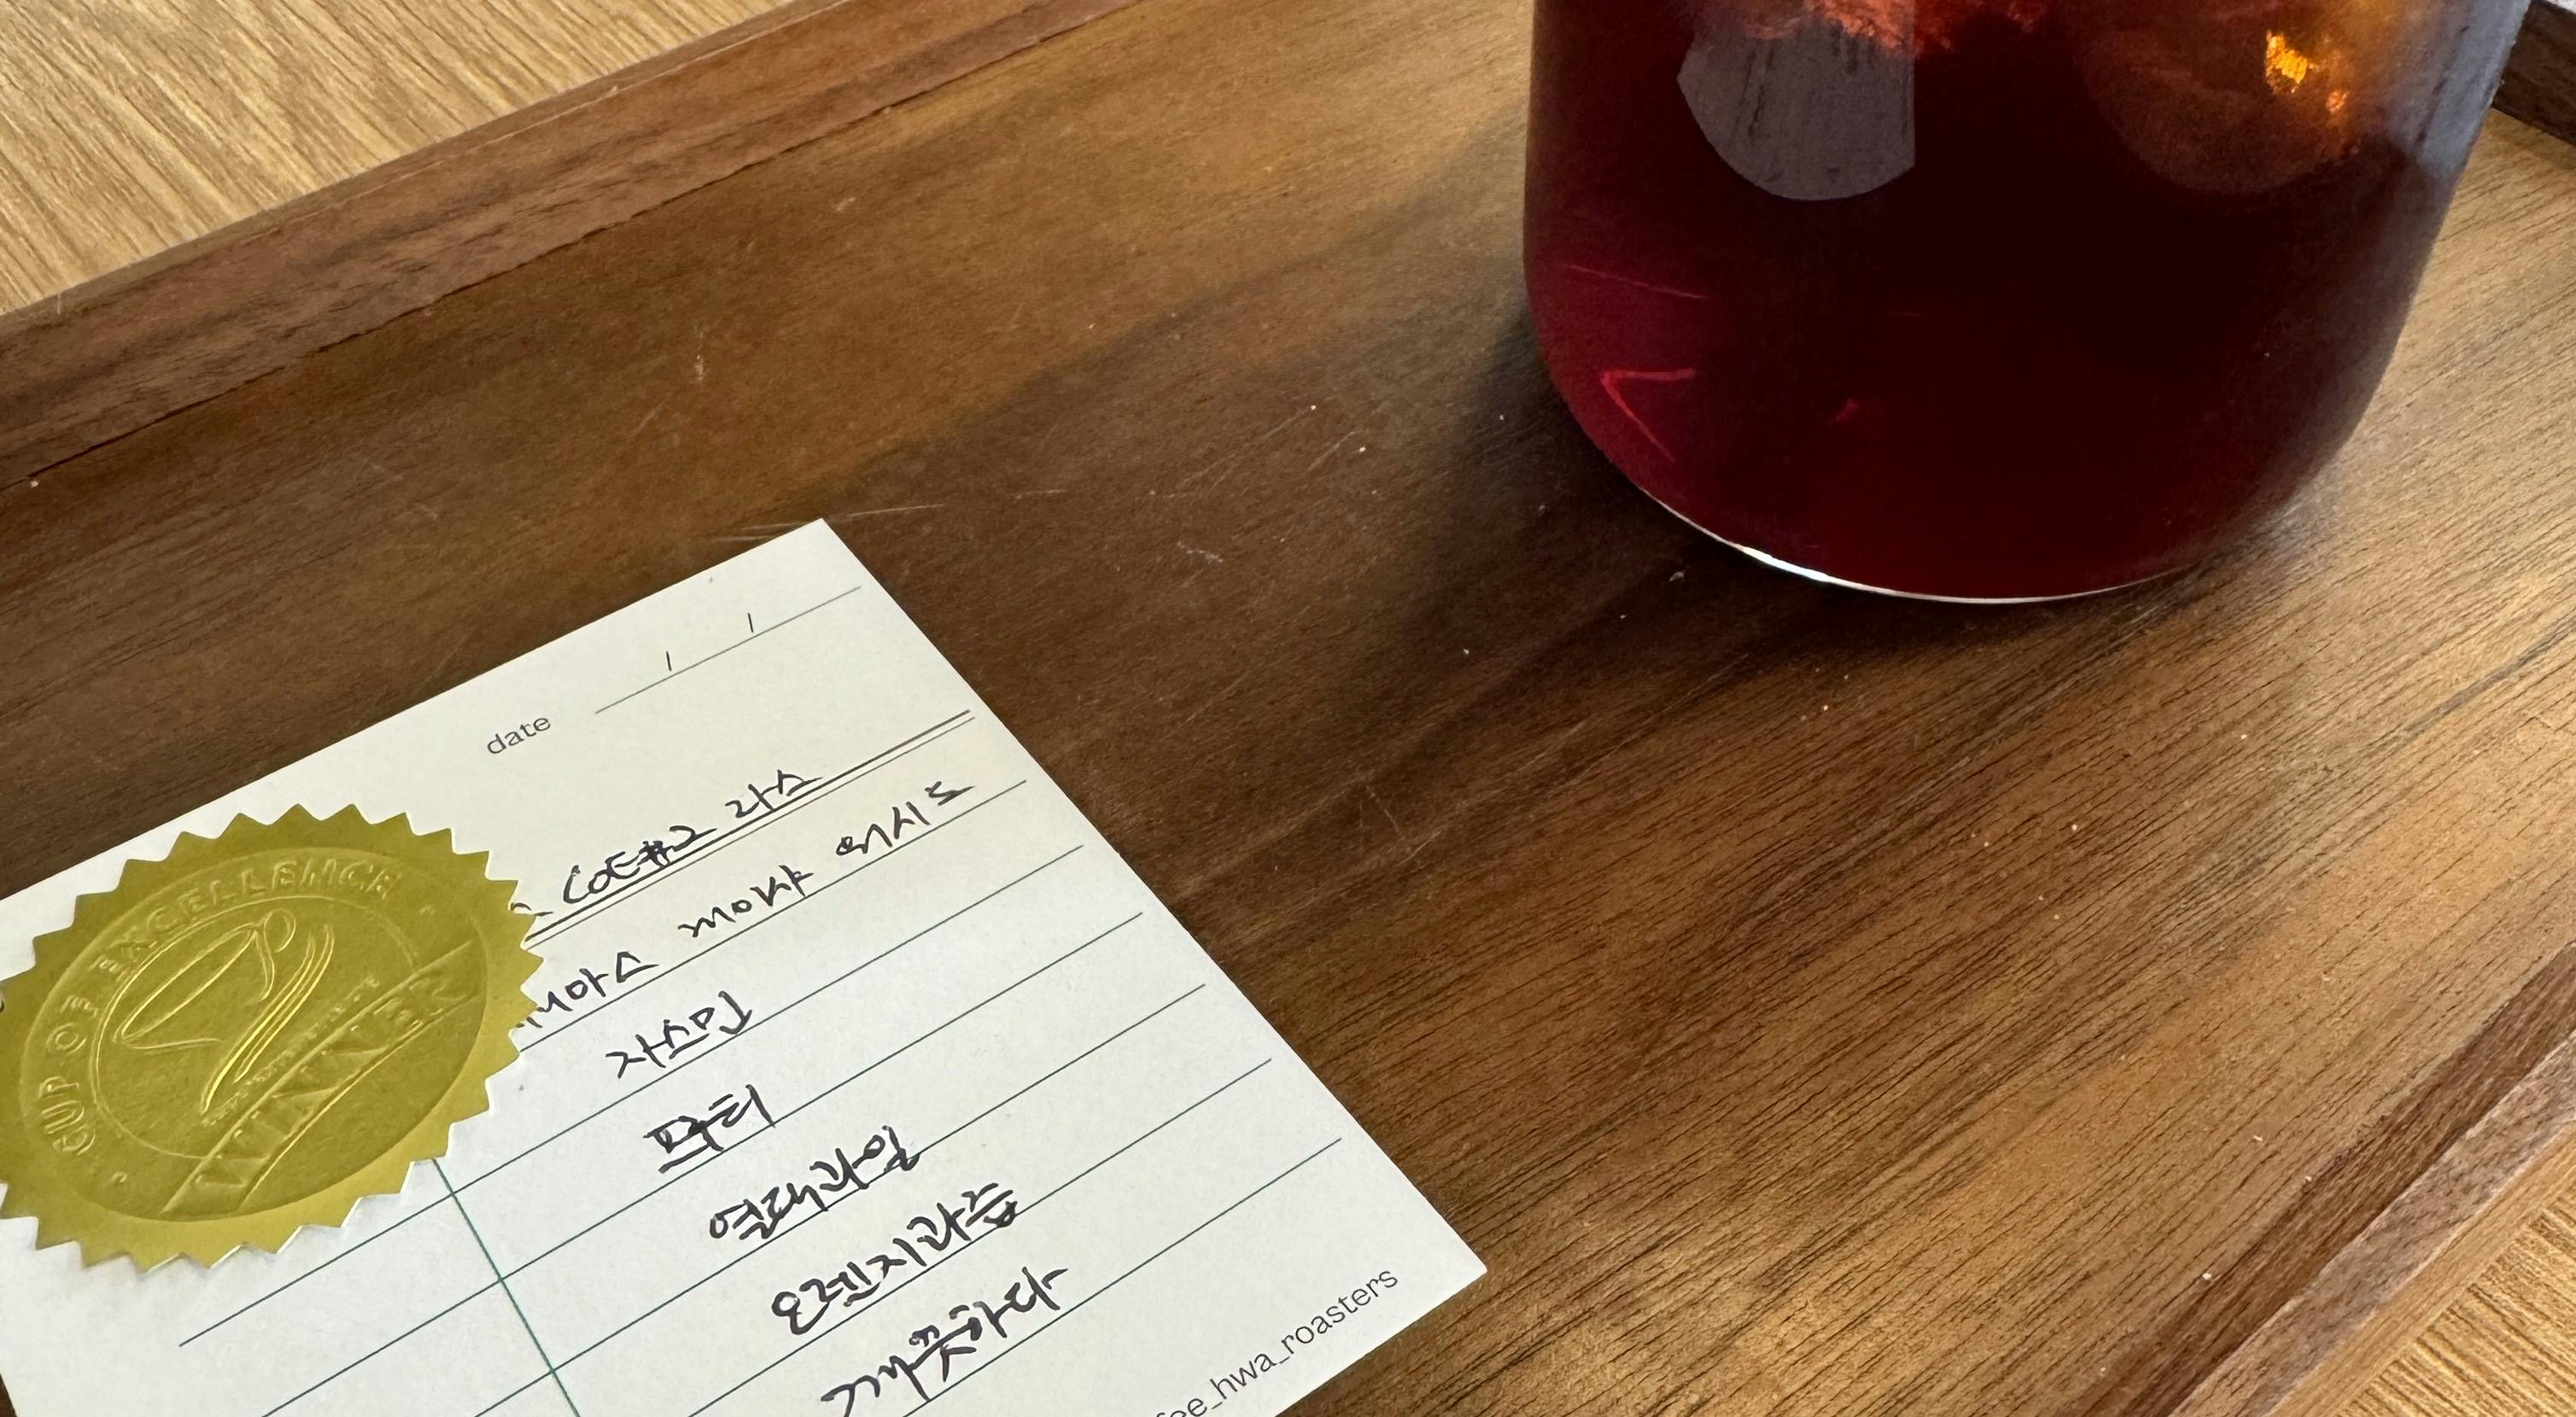 date / /
COE#2 라스
마스 mokx 워시드
자스민
루티
열대과일
오렌지과즙
깨끗하다
CUP OF EXCELLENCE
WINNER
fee_hwa_roasters